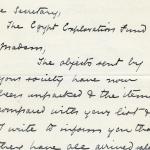 e Secretary,
The Egypt Exploration Fund
Madam,
The objects sent by
your society have now
been unpacked & the items
compared with your list &
I write to inform you that
they have all arrived